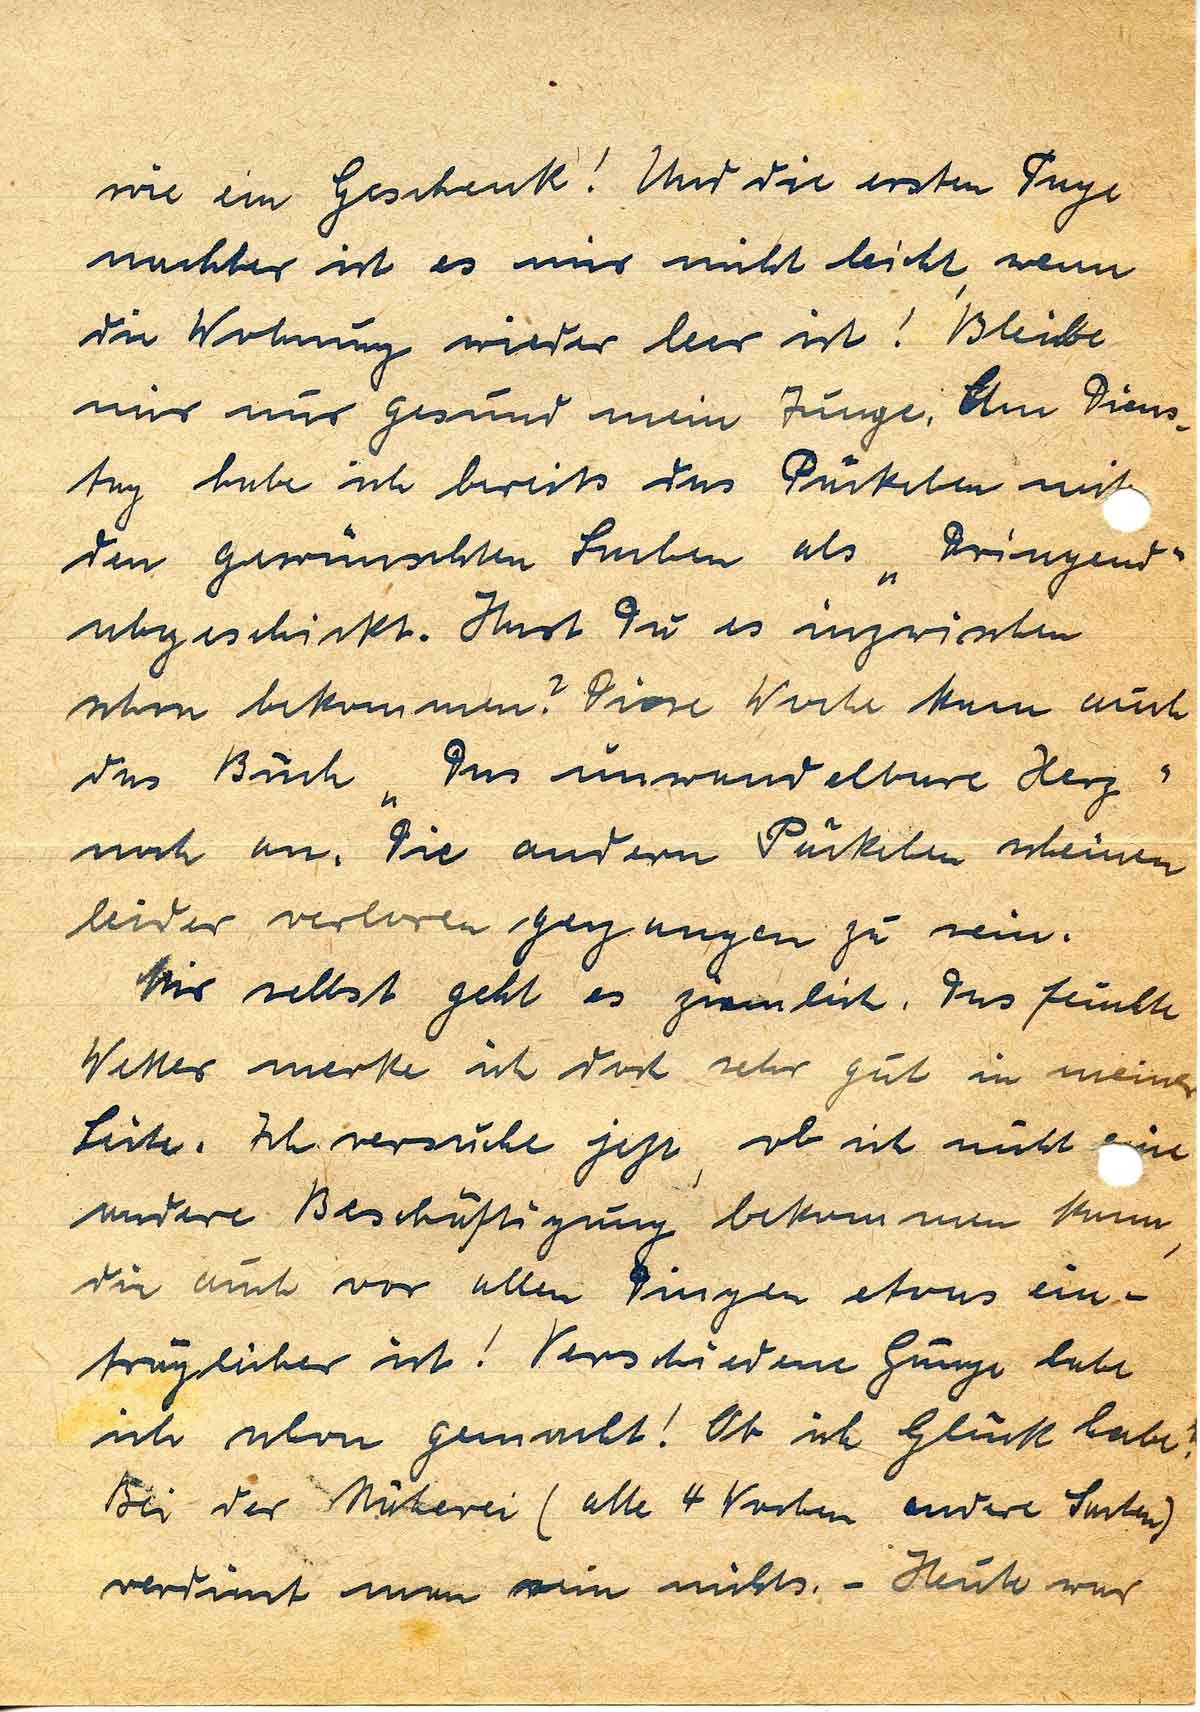 wie ein Geschenk! Und die ersten Tage
nachher ist es mir nicht leicht, wenn
die Wohnung wieder leer ist! Bleibe
mir nur gesund mein Junge. Am Diens-
tag habe ich bereits das Päckchen mit
den gewünschten Sachen als „Dringend“
abgeschickt. Hast Du es inzwischen
schon bekommen? Diese Woche kam auch
das Buch „Das unwandelbare Herz“
noch an. Die andern Päckchen scheinen
leider verloren gegangen zu sein.
Mir selbst geht es ziemlich. Das feuchte
Wetter merke ich doch sehr gut in meiner
Seite. Ich versuche jetzt, ob ich nicht eine
andere Beschäftigung bekommen kann,
die auch vor allen Dingen etwas ein-
träglicher ist! Verschiedene Gänge habe
ich schon gemacht! Ob ich Glück habe?
Bei der Näherei (alle 4 Wochen andere Sachen)
verdient man nichts. – Heute war